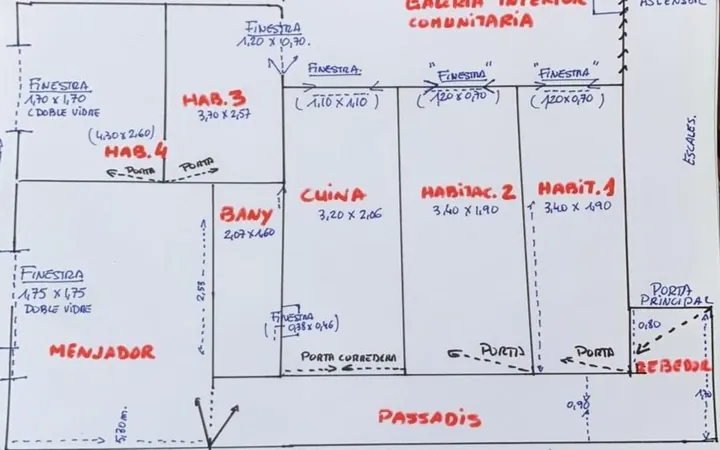 GALERIA INTERIOR
COMUNITARIA
ASCENSOR
FINESTRA
1,20 x 0,70.
FINESTRA.
"FINESTRA"
"FINESTRA"
FINESTRA
1,70 x 1,70
(DOBLE VIDRE
HAB. 3
3,70 x 2,57
(1,10 x 1,10)
(1,20 x 0,70)
(1,20 x 0,70)
(4,30 x 2,60)
HAB. 4
PORTA
PORTA
ESCALES.
BANY
2,07 x 1,60
CUINA
3,20 x 2,06
HABITAC. 2
3,40 x 1,90
HABIT. 1
3,40 x 1,90
FINESTRA
1,75 x 1,75
DOBLE VIDRE
2,53
PORTA
PRINCIPAL
FINESTRA
(0,38 x 0,46)
0,80
MENJADOR
PORTA CORREDERA
PORTA
PORTA
REBEDOR
PASSADIS
0,90
1,70
5,30 m.